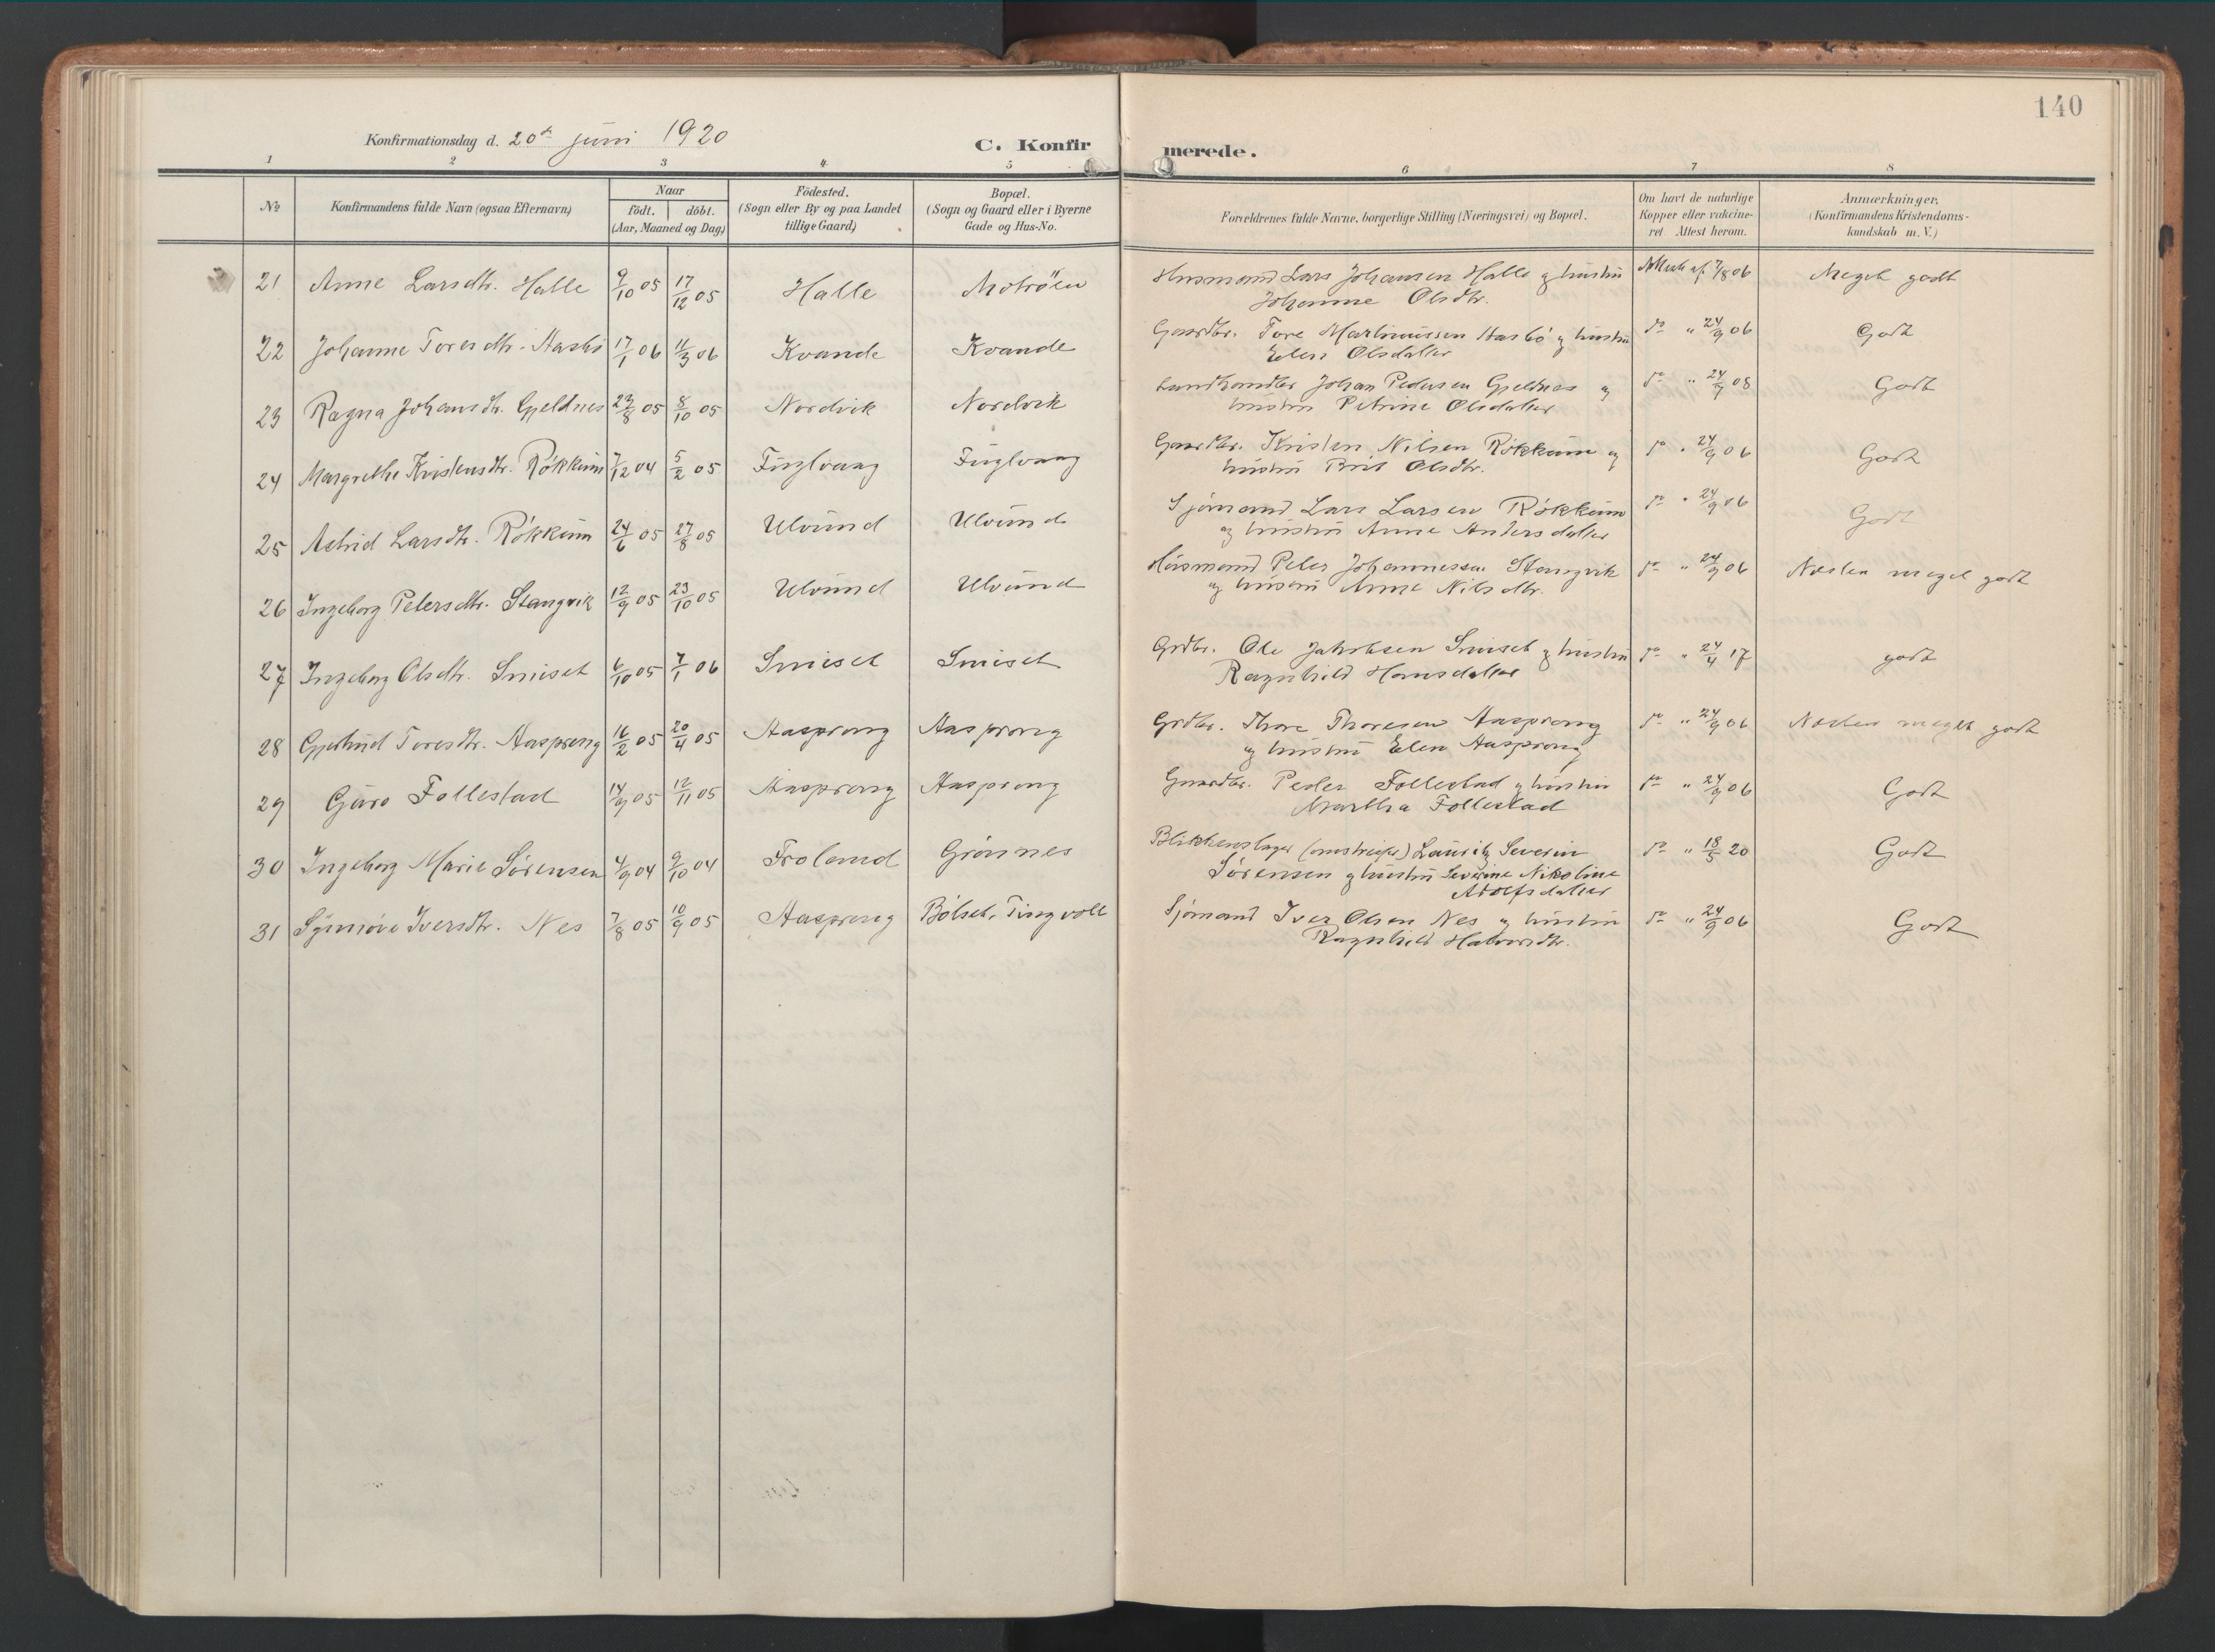 140
Konfirmationsdag d. 20de juni 1920
C. Konfirmerede.
1 2 3 4 5 6 7 8
No
Konfirmandens fulde Navn (ogsaa Efternavn)
Naar
födt. döbt.
(Aar, Maaned og Dag)
Födested.
(Sogn eller By og paa Landet
tillige Gaard)
Bopæl.
(Sogn og Gaard eller i Byerne
Gade og Hus-No.
Forældrenes fulde Navne, borgerlige Stilling (Næringsvei) og Bopæl.
Om havt de naturlige
Kopper eller vakcine-
ret Attest herom.
Anmærkninger,
(Konfirmandens Kristendoms-
kundskab m. V.)
21 Anne Larsdtr. Halle 9/10 05 17/12 05 Halle Husmand Lars Johansen Halle og hustru 7/8 06 Meget godt
Johanne Olsdtr.
22 Johanne Toresdtr. 17/1 06 11/3 06 Kvande Kvande Gaardbr. Tore Martinussen og hustru do " 24/9 06 Godt
Elen Olsdatter
23 Ragna Johansdtr. Gjeldnes 23/8 05 8/10 05 Nordvik Nordvik Landhandler Johan Pedersen Gjeldnes og do " 24/9 Godt
hustru Petrine Olsdatter
24 Margrethe Kristensdtr. Røkkum 7/12 04 5/2 05 Fuglvaag Fuglvaag Gaardbr. Kristen Nilsen Røkkum og do " 24/9 06 Godt
hustru Brit Olsdtr.
25 Astrid Larsdtr. Røkkum 24/6 05 27/8 05 Ulvund Ulvund Sjømand Lars Larsen Røkkum do " 24/9 06 Godt
og hustru Anne Andersdatter
26 Ingeborg Petersdtr. Stangvik 12/9 05 23/10 05 Ulvund Ulvund Husmand Peter Johannessen Stangvik do " 24/9 06 Næsten meget godt
og hustru Anne Nilsdtr.
27 Ingeborg Olsdtr. Smiset 6/10 05 7/1 06 Smiset Smiset Grdbr. Ole Jakobsen Smiset og hustru do " 24/4 17 godt
Ragnhild Hansdatter
28 Gjertrud Toresdtr. Aasprong 16/2 05 20/4 05 Aasprong Aasprong Grdbr. Thore Thoresen Aasprong do " 24/9 06 Næsten meget godt
og hustru Elen Aasprong
29 Guro Follestad 14/9 05 12/11 05 Aasprong Aasprong Gaardbr. Peder Follestad og hustru do " 24/9 06 Godt
Martha Follestad
30 Ingeborg Marie Sørensen 4/9 04 9/10 04 Froland Grønnes Blikkenslager (omstreifer) Lauritz Severin do " 18/5 20 Godt
Sørensen og hustru Severine Nikoline
Adolfsdatter
31 Synnøve Iversdtr. Nes 7/8 05 10/9 05 Aasprong Bølset, Tingvoll Sjømand Iver Olsen Nes og hustru do " 24/9 06 Godt
Ragnhild Halvorsdtr.